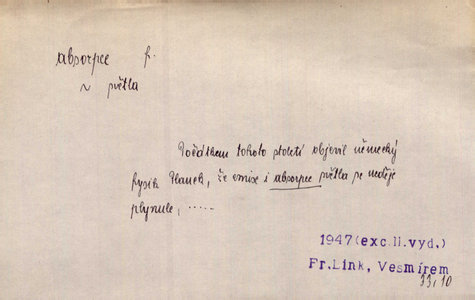 absorpce f.
~ světla
Počátkem tohoto století objevil německý
fysik Planck, že emise i absorpce světla se neděje
plynule, .....
1947 (exc. II. vyd.)
Fr. Link, Vesmírem
33,10